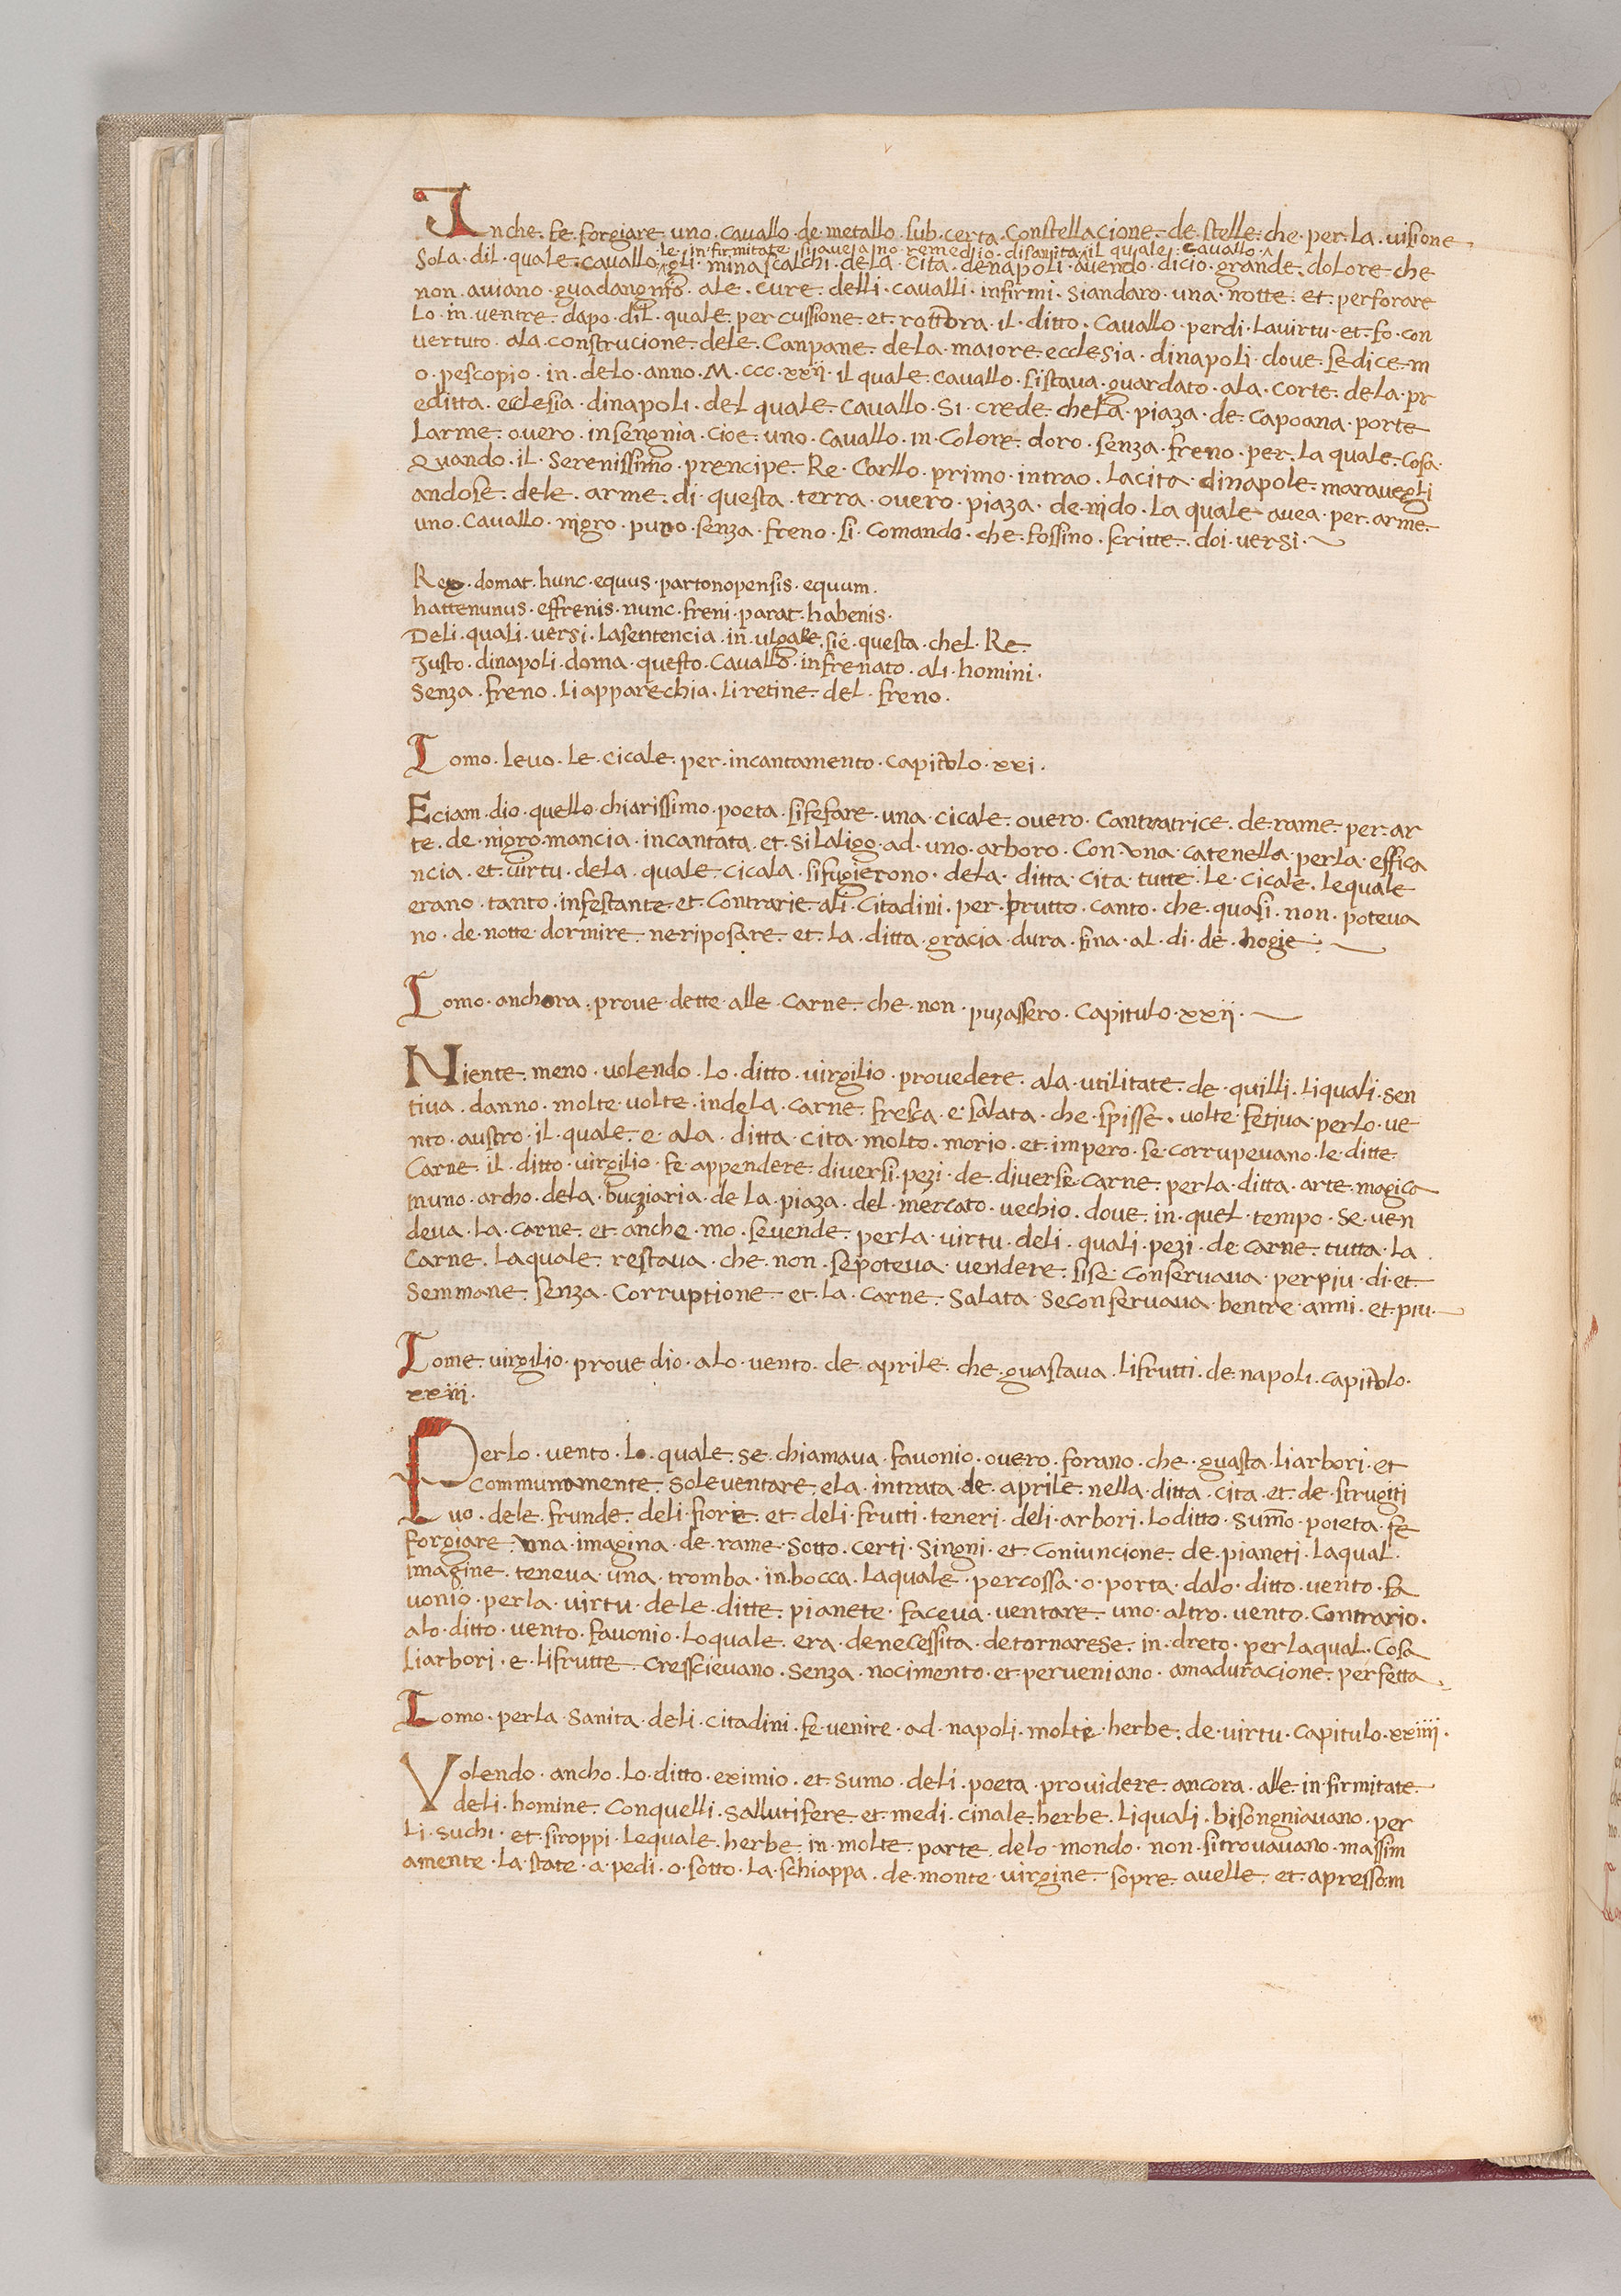 Inche · fe · forgiare · uno · cavallo · de · metallo · sub · certa · Constellacione · de · stelle · che · per · la · visione ·
le · in · firmitate · si avejano · remedjio · disanita · il · quale · cavallo
Sola · dil · quale · cavallo · gli · minascalchi · dela · Cita · denapoli · avendo · dicio · grande · dolore · che
non · aviano · guadangnio · ale · cure · delli · cavalli · infirmi · siandaro · una · notte · et · perforare
Lo · in · ventre · dapo · dil · quale · per cussione · et · rottora · il · ditto · Cavallo · perdi · Lavirtu · et · fo · con
vertuto · ala · construcione · dele · Canpane · dela · maiore · ecclesia · dinapoli · dove · se · dice · m
o · pescopio · in · delo · anno · M · ccc · xxij · il quale · cavallo · sistava · guardato · ala · corte · dela · pr
editta · ecclesia · dinapoli · del quale · cavallo · si · crede · chela · piaza · de · capoana · porte
Larme · overo · insengnia · cioe · uno · cavallo · in · Colore · doro · senza · freno · per · la quale · Cosa ·
Quando · il · Serenissimo · prencipe · Re · Carllo · primo · intrao · Lacita · dinapole · maravegli
andose · dele · arme · di · questa · terra · overo · piaza · de · nido · La quale · avea · per · arme
uno · Cavallo · nigro · puro · senza · freno · si · Comando · che · fossino · scritte · doi · versi ·
Rex · domat · hunc · equus · partonopensis · equum ·
hattenunus · effrenis · nunc · freni · parat · habenis ·
Deli · quali · versi · Lasentencia · in vlgare · sie · questa · chel · Re
Justo · dinapoli · doma · questo · Cavallo · infrenato · ali · homini ·
Senza · freno · li apparechia · li retine · del · freno ·
Como · levo · le · cicale · per · incantamento · capitolo · xxi ·
Eciam · dio · quello · chiarissimo · poeta · sifefare · una · cicale · overo · Cantatrice · de · rame · per · ar
te · de · nigro · mancia · incantata · et · si laligo · ad · uno · arboro · Con una · catenella · perla · effica
ncia · et · virtu · dela · quale · cicala · sifugierono · dela · ditta · cita · tutte · le · cicale · lequale
erano · tanto · infestante · et · Contrarie · ali · Citadini · per · brutto · canto · che · quasi · non · poteva
no · de · notte · dormire · neriposare · et · la · ditta · gracia · dura · sina · al · di · de · hogie ·
Como · anchora · prove · dette · alle · Carne · che · non · puzassero · Capitulo · xxij ·
Niente · meno · volendo · lo · ditto · virgilio · provedere · ala · utilitate · de · quilli · liquali · sen
tiva · danno · molte · volte · indela · carne · fresca · e · salata · che · spisse · volte · fetiva · perlo · ve
nto · austro · il · quale · e · ala · ditta · cita · molto · morio · et · impero · se · corrupevano · le · ditte
Carne · il · ditto · virgilio · fe · appendere · diversi · pezi · de · diverse · carne · perla · ditta · arte · magica
inuno · archo · dela · bucziaria · de la · piaza · del · mercato · vechio · dove · in · quel · tempo · se · ven
deva · la · carne · et · anche · mo · sevende · perla · virtu · deli · quali · pezi · de carne · tutta · la
Carne · laquale · restava · che · non · sepoteva · vendere · sise · Conservava · perpiu · di · et
Semmane · senza · Corruptione · et · la · carne · Salata · seconservava · bentre · anni · et · piu ·
Come · virgilio · prove dio · alo · vento · de · aprile · che · guastava · lifrutti · de · napoli · capitolo ·
xxiij ·
Perlo · vento · lo · quale · se · chiamava · favonio · overo · forano · che · guasta · liarbori · et
communamente · soleventare · ela · intrata · de · aprile · nella · ditta · cita · et · de · strugiti
vo · dele · frunde · deli · fiorie · et · deli · frutti · teneri · deli · arbori · Loditto · sumo · poieta · fe
forgiare · una · imagina · de · rame · sotto · certi · singni · et · coniuncione · de · pianeti · laqual ·
imagine · teneva · una · tromba · in bocca · laquale · percossa · o · porta · dalo · ditto · vento · fa
vonio · perla · virtu · dele · ditte · pianete · faceva · ventare · uno · altro · vento · Contrario ·
alo · ditto · vento · favonio · loquale · era · denecessita · detornarese · in · dreto · perlaqual · Cosa
liarbori · e · lifrutte · crescievano · senza · nocimento · et · perveniano · amaduracione · perfetta ·
Como · perla · sanita · deli · citadini · fe · venire · ad · napoli · molte · herbe · de · virtu · capitulo · xxiiij ·
Volendo · ancho · lo · ditto · eximio · et · sumo · deli · poeta · providere · ancora · alle · infirmitate
deli · homine · Conquelli · sallutifere · et · medi · cinale · herbe · liquali · bisongniavano · per
li · suchi · et · siroppi · lequale · herbe · in · molte · parte · delo · mondo · non · sitrovavano · massim
amente · la · state · a · pedi · o · sotto · la · schiappa · de · monte · virgine · sopre · avelle · et · apressom